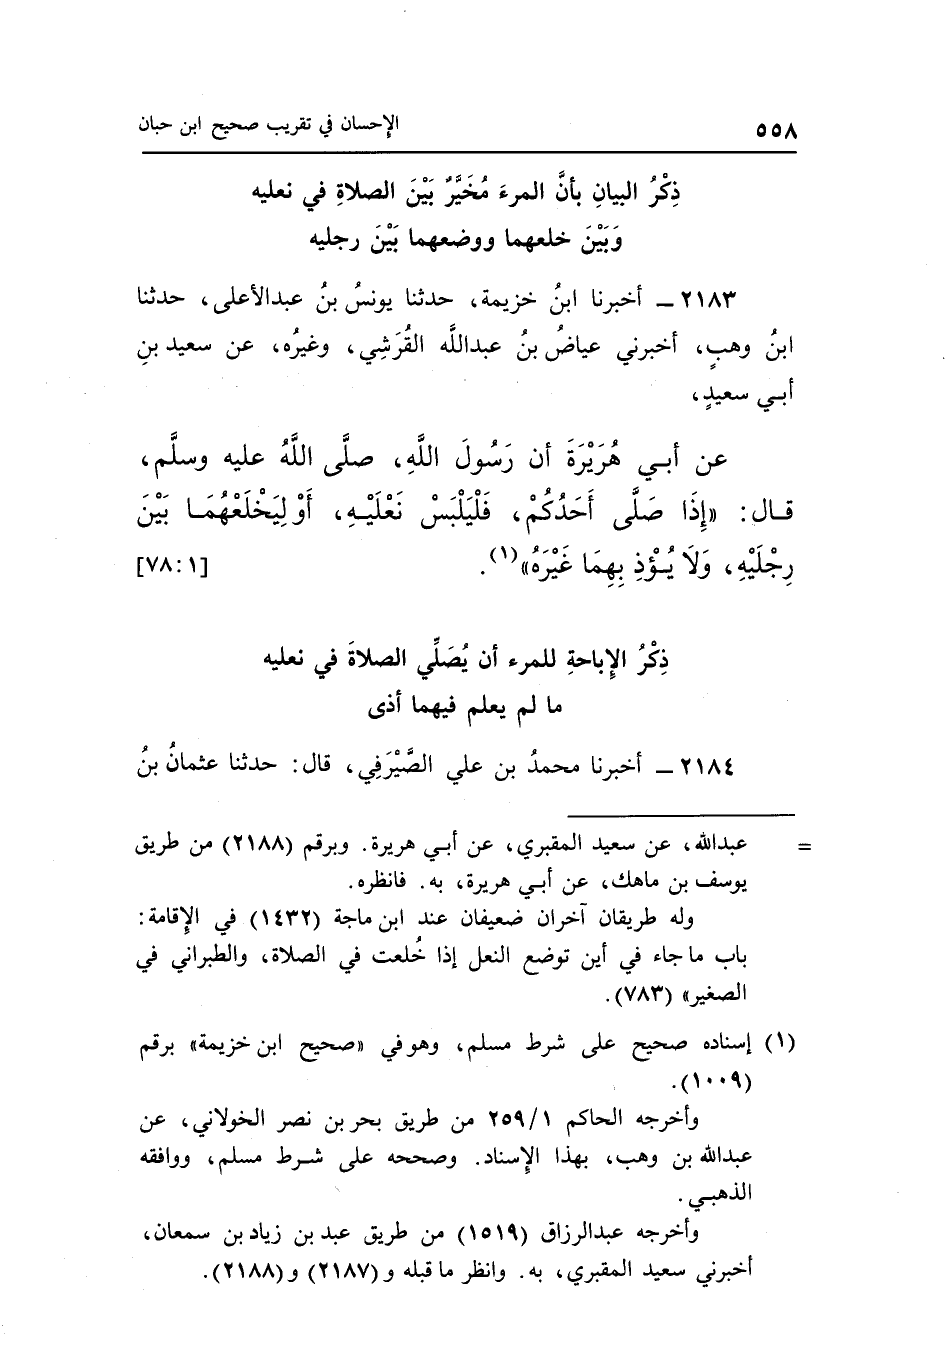 ٥٥٨ الإحسان في تقريب صحيح ابن حبان
ذِكْرُ البيانِ بأنَّ المرءَ مُخَيَّرٌ بَيْنَ الصلاةِ في نعليه
وَبَيْنَ خلعهما ووضعهما بَيْنَ رجليه
٢١٨٣ ــ أخبرنا ابنُ خزيمة، حدثنا يونسُ بنُ عبدالأعلى، حدثنا
ابنُ وهبٍ، أخبرني عياضُ بنُ عبدالله القُرَشِي، وغيرُه، عن سعيد بنِ
أبـي سعيدٍ،
عن أبـي هُرَيْرَةَ أن رَسُولَ اللَّهِ، صلَّى اللَّهُ عليه وسلَّم،
قـال: «إِذَا صَلَّى أَحَدُكُمْ، فَلْيَلْبَسْ نَعْلَيْـهِ، أَوْ لِيَخْلَعْهُمَـا بَيْنَ
رِجْلَيْهِ، وَلَا يُـؤْذِ بِهِمَا غَيْرَهُ»(١). [٧٨:١]
ذِكْرُ الإباحةِ للمرء أن يُصَلِّي الصلاةَ في نعليه
ما لم يعلم فيهما أذى
٢١٨٤ ــ أخبرنا محمدُ بن علي الصَّيْرَفِي، قال: حدثنا عثمانُ بنُ
= عبدالله، عن سعيد المقبري، عن أبـي هريرة. وبرقم (٢١٨٨) من طريق
يوسف بن ماهك، عن أبـي هريرة، به. فانظره.
وله طريقان آخران ضعيفان عند ابن ماجة (١٤٣٢) في الإقامة:
باب ما جاء في أين توضع النعل إذا خُلعت في الصلاة، والطبراني في
الصغير» (٧٨٣).
(١) إسناده صحيح على شرط مسلم، وهو في «صحيح ابن خزيمة» برقم
(١٠٠٩).
وأخرجه الحاكم ٢٥٩/١ من طريق بحر بن نصر الخولاني، عن
عبدالله بن وهب، بهذا الإسناد. وصححه على شـرط مسلم، ووافقه
الذهبـي.
وأخرجه عبدالرزاق (١٥١٩) من طريق عبد بن زياد بن سمعان،
أخبرني سعيد المقبري، به. وانظر ما قبله و (٢١٨٧) و (٢١٨٨).